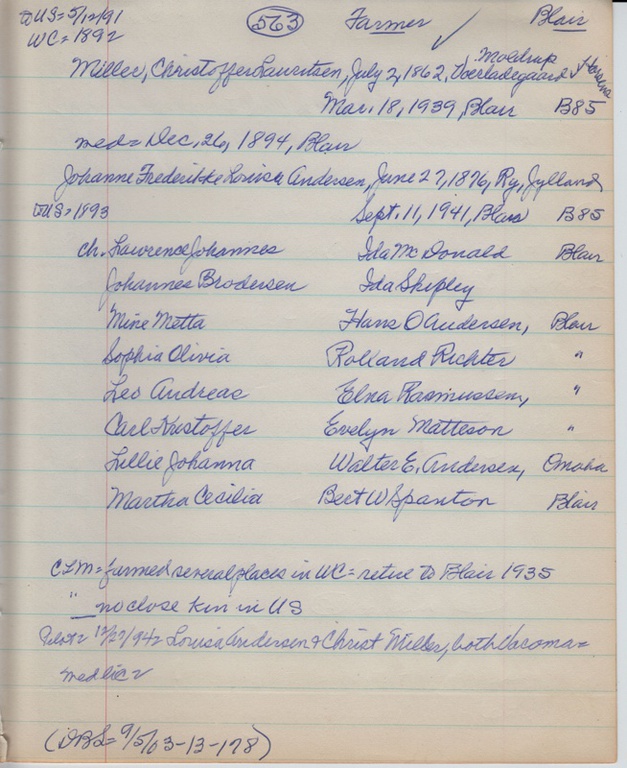 to US = 5/12/91 (563) Farmer Blair
WC = 1892 ✓
Moldrup
Miller, Christoffer Lauritsen, July 2, 1862, Voerladegaard ✓ Horsens
Mar. 18, 1939, Blair B85
med = Dec. 26, 1894, Blair
Johanne Frederikke Lovisa Andersen, June 27, 1876, Ry, Jylland
to US = 1893 Sept. 11, 1941, Blair B85
ch. Lawrence Johannes Ida McDonald Blair
Johannes Brodersen Ida Shipley
Mine Metta Hans O Andersen, Blair
Sophia Olivia Rolland Richter "
Leo Andreas Elna Rasmussen, "
Carl Kristoffer Evelyn Matteson "
Lillie Johanna Walter E. Andersen, Omaha
Martha Cecilia Bert W Spanton Blair
CLM = farmed several places in WC = retire to Blair 1935
" no close kin in US
12/27/94 = Lovisa Andersen + Christ Miller, both Vacoma =
med lic
(DBL = 9/5/03-13-178)